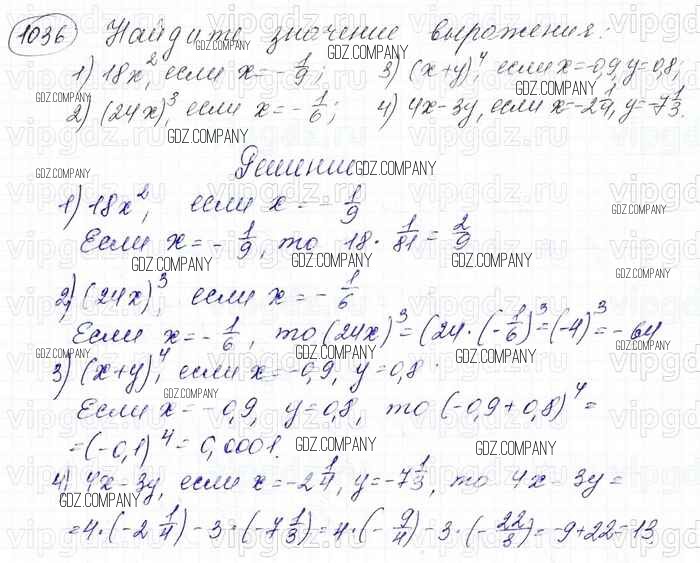 1036 Найдите значение выражения:
1) 18x², если x = -1/9; 3) (x+y)⁴, если x=-0,9, y=0,8;
2) (24x)³, если x = -1/6; 4) 4x-3y, если x=-2 1/4, y=-7 1/3.
Решение
1) 18x², если x = -1/9
Если x = -1/9, то 18 · 1/81 = 2/9
2) (24x)³, если x = -1/6
Если x = -1/6, то (24x)³ = (24·(-1/6)³ = (-4)³ = -64
3) (x+y)⁴, если x = -0,9, y = 0,8.
Если x = -0,9, y = 0,8, то (-0,9+0,8)⁴ =
= (-0,1)⁴ = 0,0001.
4) 4x-3y, если x = -2 1/4, y = -7 1/3, то 4x-3y =
= 4·(-2 1/4) - 3·(-7 1/3) = 4·(-9/4) - 3·(-22/3) = -9+22 = 13
GDZ.COMPANY
vipgdz.ru